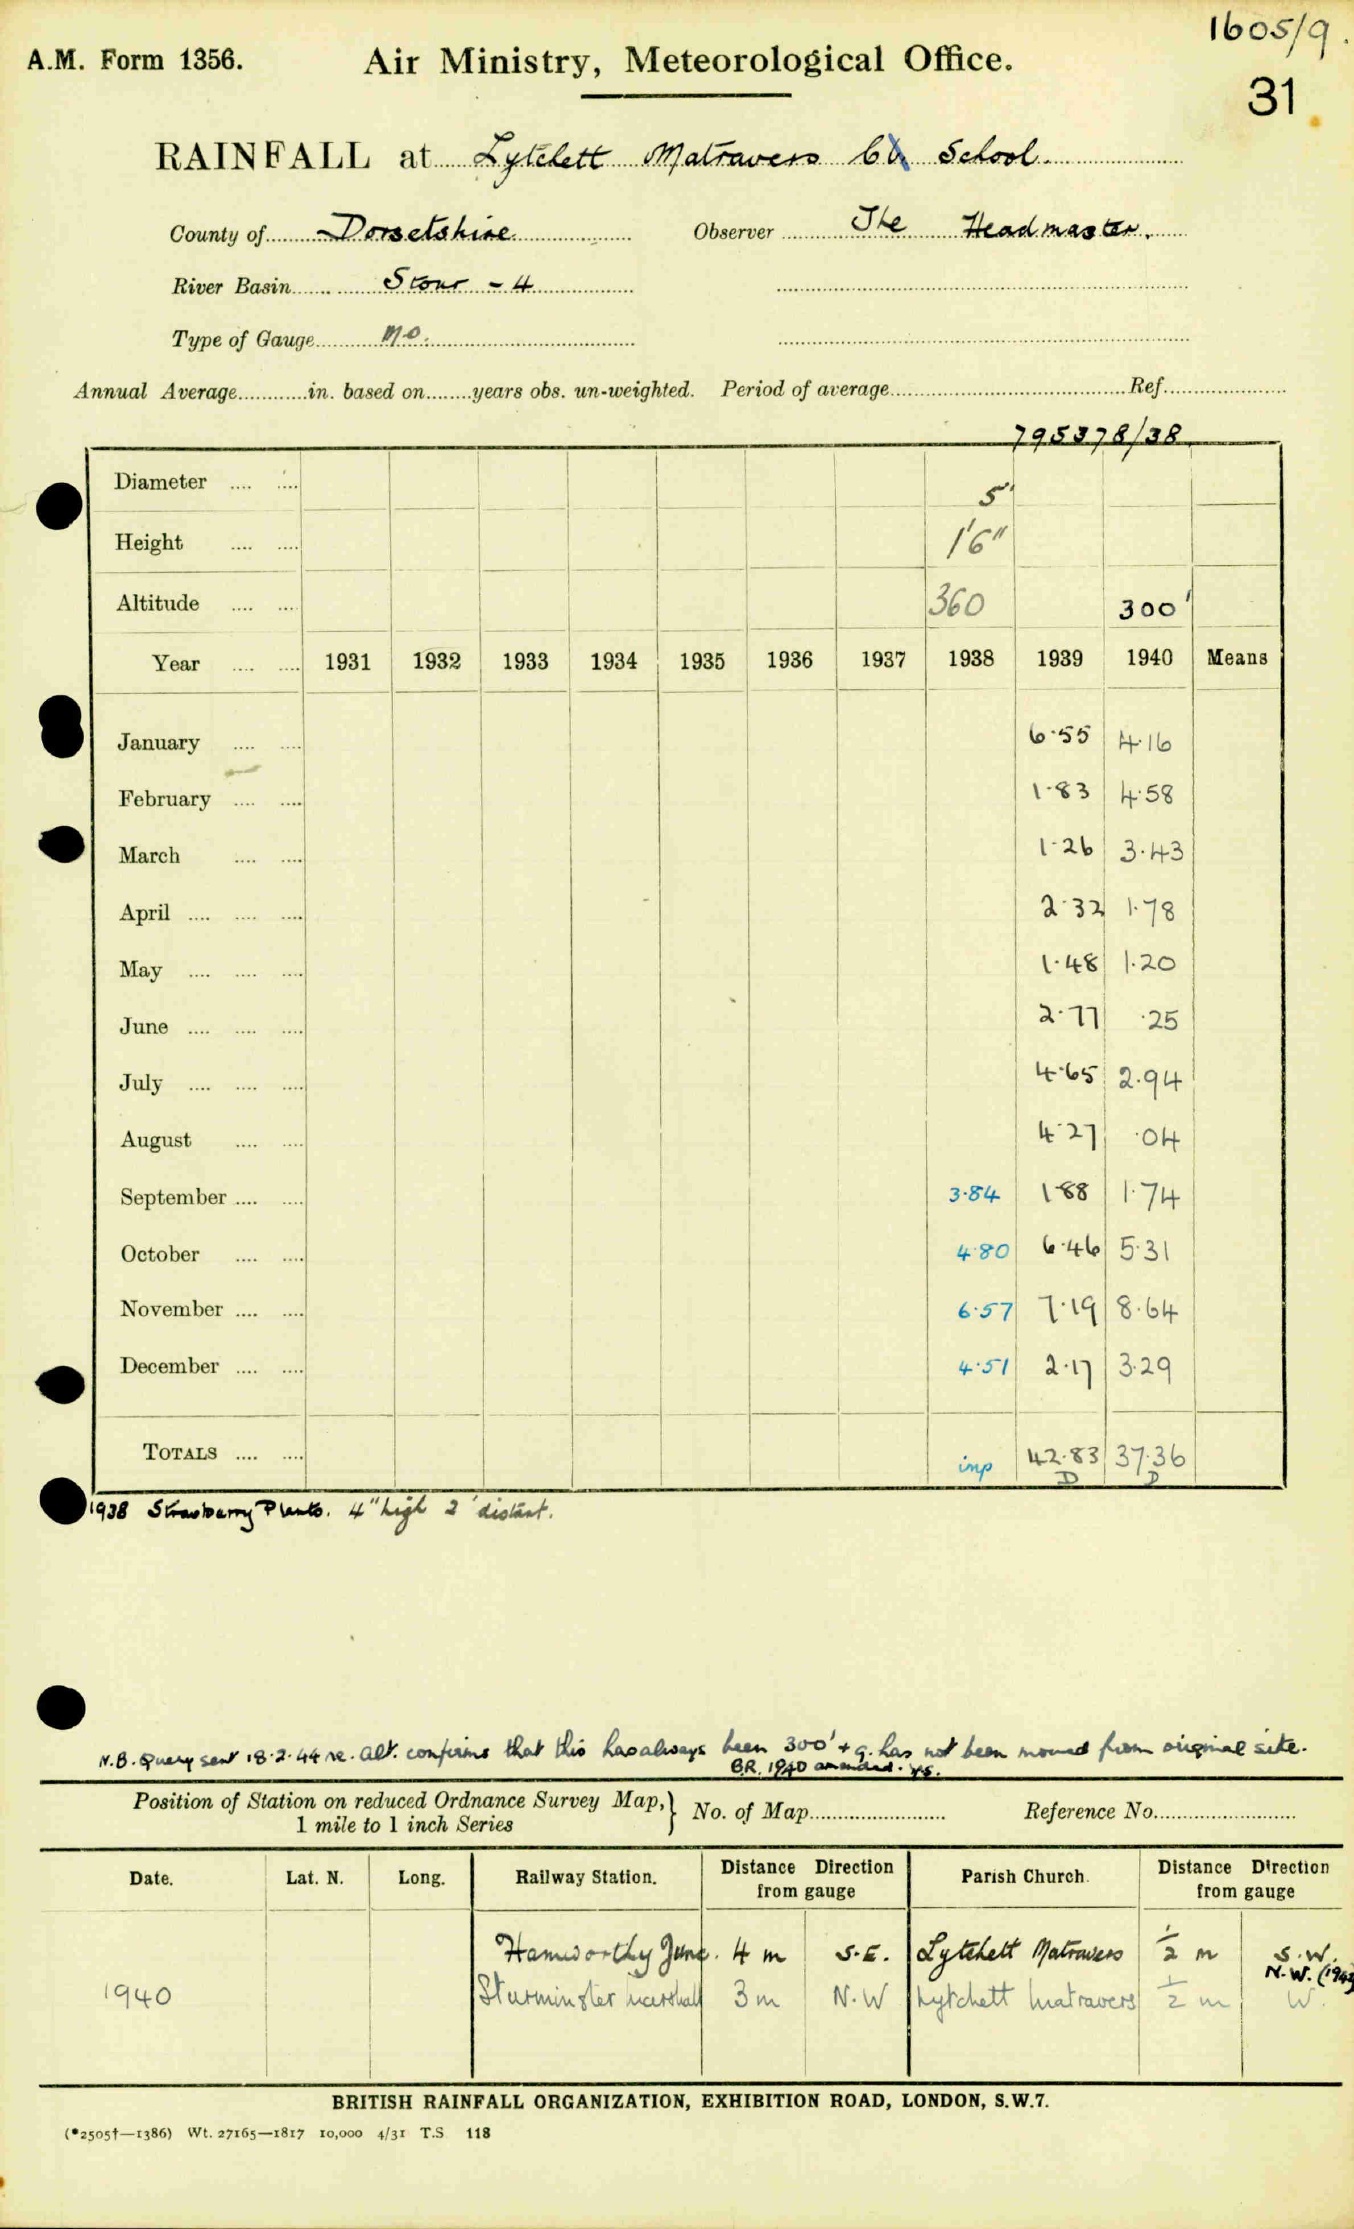 1605/9.
A.M. Form 1356. Air Ministry, Meteorological Office.
31
RAINFALL at Lytchett Matravers School.
County of Dorsetshire Observer The Headmaster.
River Basin Stour - 4
Type of Gauge MO.
Annual Average in. based on years obs. un-weighted. Period of average Ref.
795378/38
Diameter 5"
Height 1'6"
Altitude 360 300'
Year 1931 1932 1933 1934 1935 1936 1937 1938 1939 1940 Means
January 6.55 4.16
February 1.83 4.58
March 1.26 3.43
April 2.32 1.78
May 1.48 1.20
June 2.77 .25
July 4.65 2.94
August 4.27 .04
September 3.84 1.88 1.74
October 4.80 6.46 5.31
November 6.57 7.19 8.64
December 4.51 2.17 3.29
TOTALS inp 42.83 37.36
D D
1938 Strawberry Plants. 4" high 2' distant.
N.B. Query sent 18.2.44 re. alt. confirms that this has always been 300' + g. has not been moved from original site.
B.R. 1940 amended.
Position of Station on reduced Ordnance Survey Map,} No. of Map Reference No.
1 mile to 1 inch Series
Date. Lat. N. Long. Railway Station. Distance Direction from gauge Parish Church. Distance Direction from gauge
Hamworthy Junc. 4 m S.E. Lytchett Matravers 1/2 m S.W.
N.W. (1943)
1940 Sturminster Marshall 3 m N.W Lytchett Matravers 1/2 m W.
BRITISH RAINFALL ORGANIZATION, EXHIBITION ROAD, LONDON, S.W.7.
(*2505†—1386) Wt. 27165—1817 10,000 4/31 T.S 118